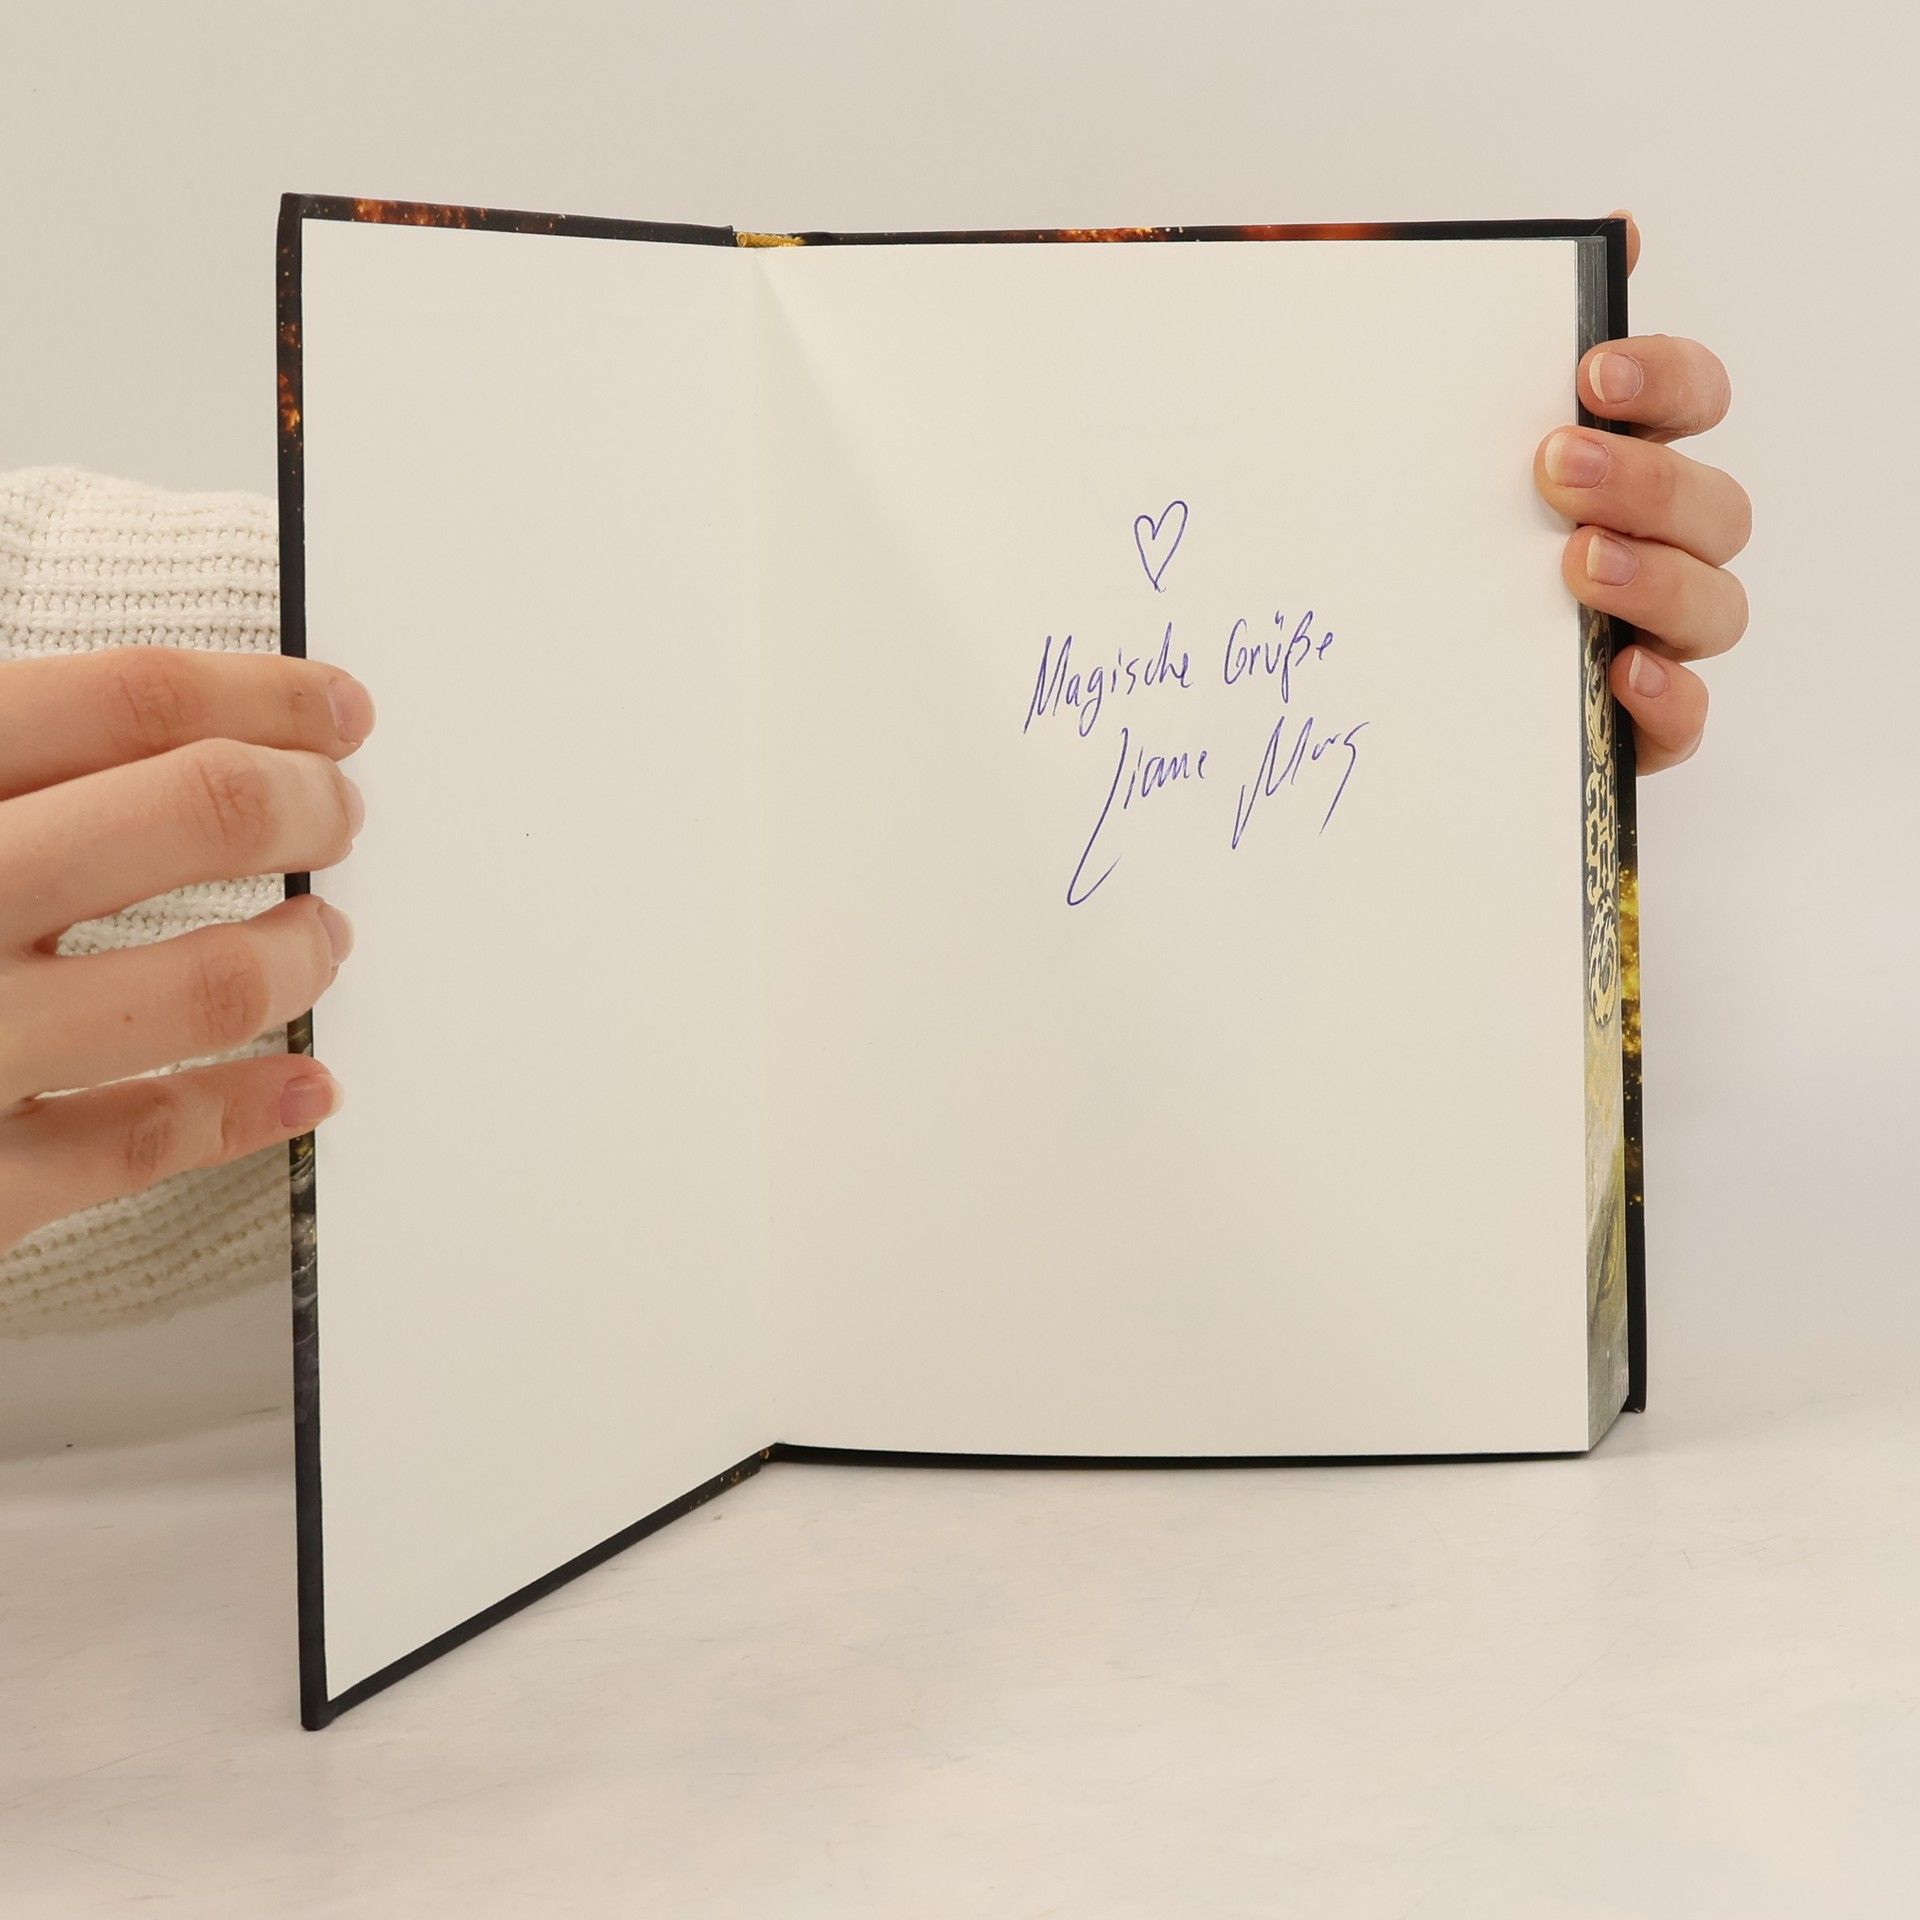 Magische Grüße
Liane Mars